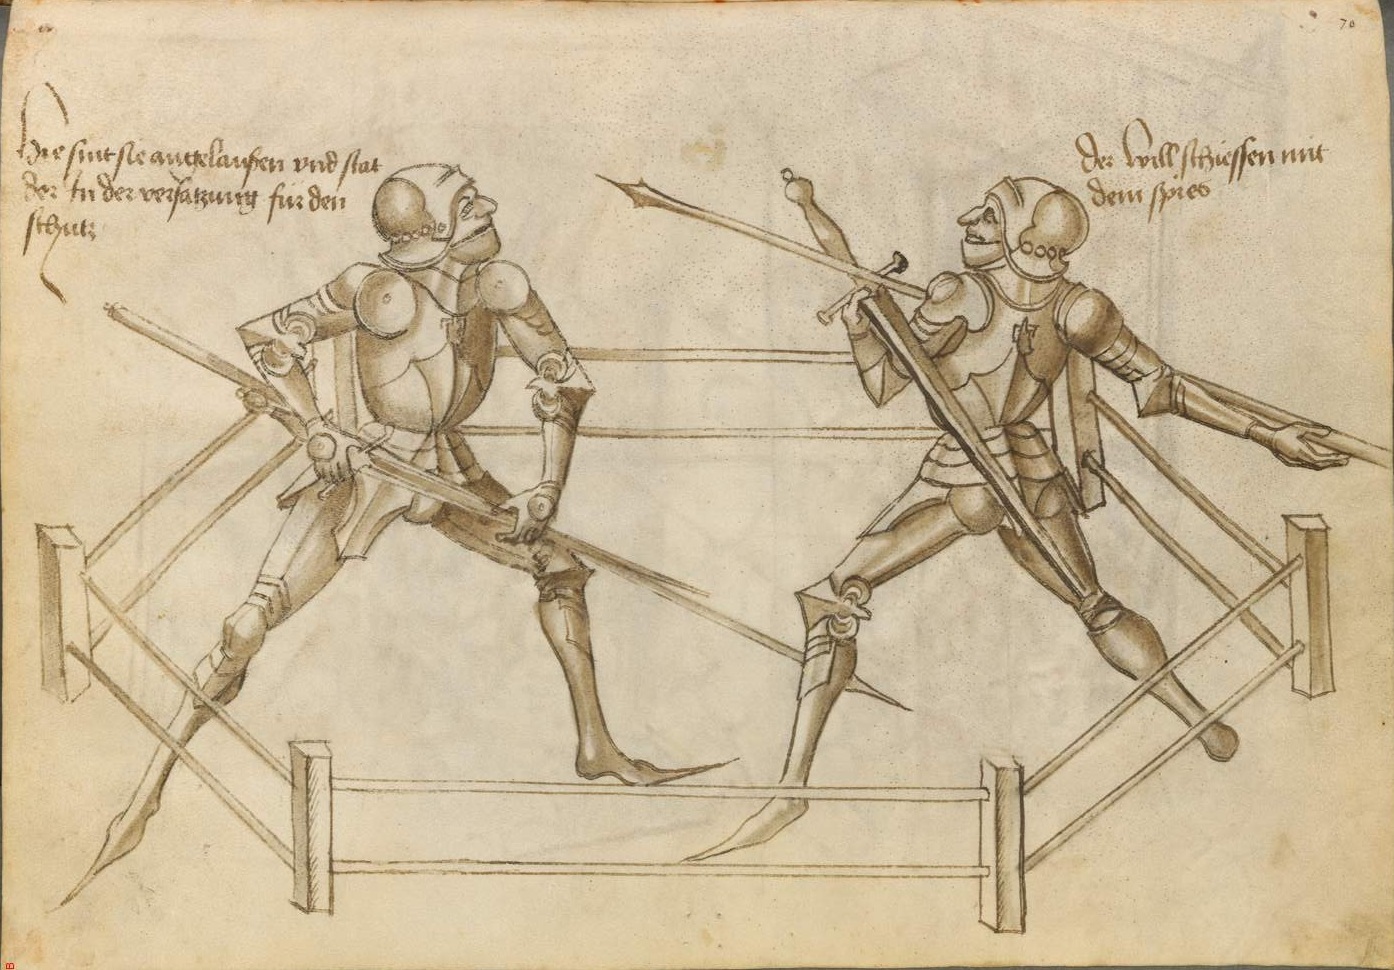 Hie sint sie angelauffen vnd stat
der In der versatzung für den
schutz
der will schiessen mit
dem spies
70